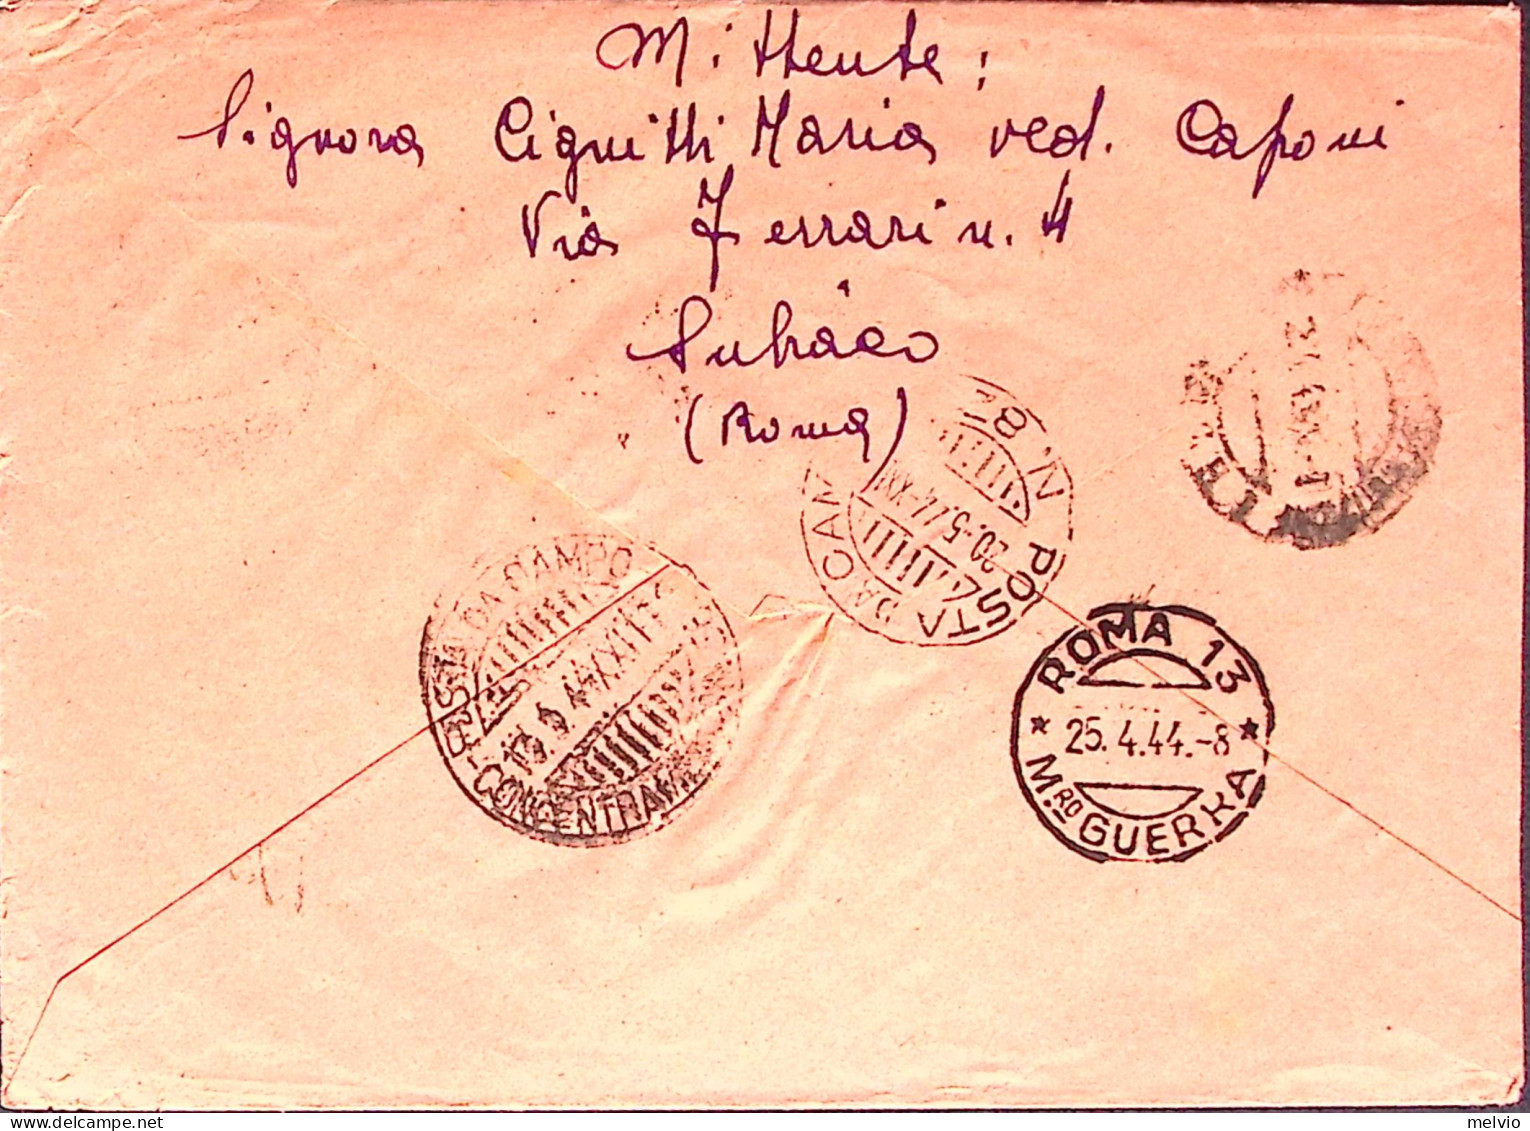 Mittente:
Signora Cignitti Maria ved. Caponi
Via Ferrari n. 4
Subiaco
(Roma)
POSTA DA CAM N. 81
20.5.44.XXI
POSTA DA CAMPO
CONCENTRAM
ROMA 13
25.4.44.-8
Mro GUERRA
melvio